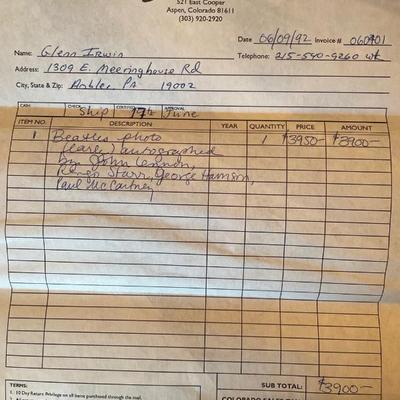 521 East Cooper
Aspen, Colorado 81611
(303) 920-2920
Date 06/09/92 Invoice # 060901
Name: Glenn Irwin
Telephone: 215-540-9260 wk
Address: 1309 E. Meeringhouse Rd
City, State & Zip: Ambler PA 19002
CASH CHECK CERTIFIED APPROVAL
Ship 17th June
ITEM NO. DESCRIPTION YEAR QUANTITY PRICE AMOUNT
1 Beatles photo 1 $3950- $3900-
(early) autographed
by John Lennon,
Ringo Starr, George Harrison,
Paul McCartney
SUB TOTAL: $3900-
TERMS:
1. 10 Day Return Privilege on all items purchased through the mail.
COLORADO SALES TAX